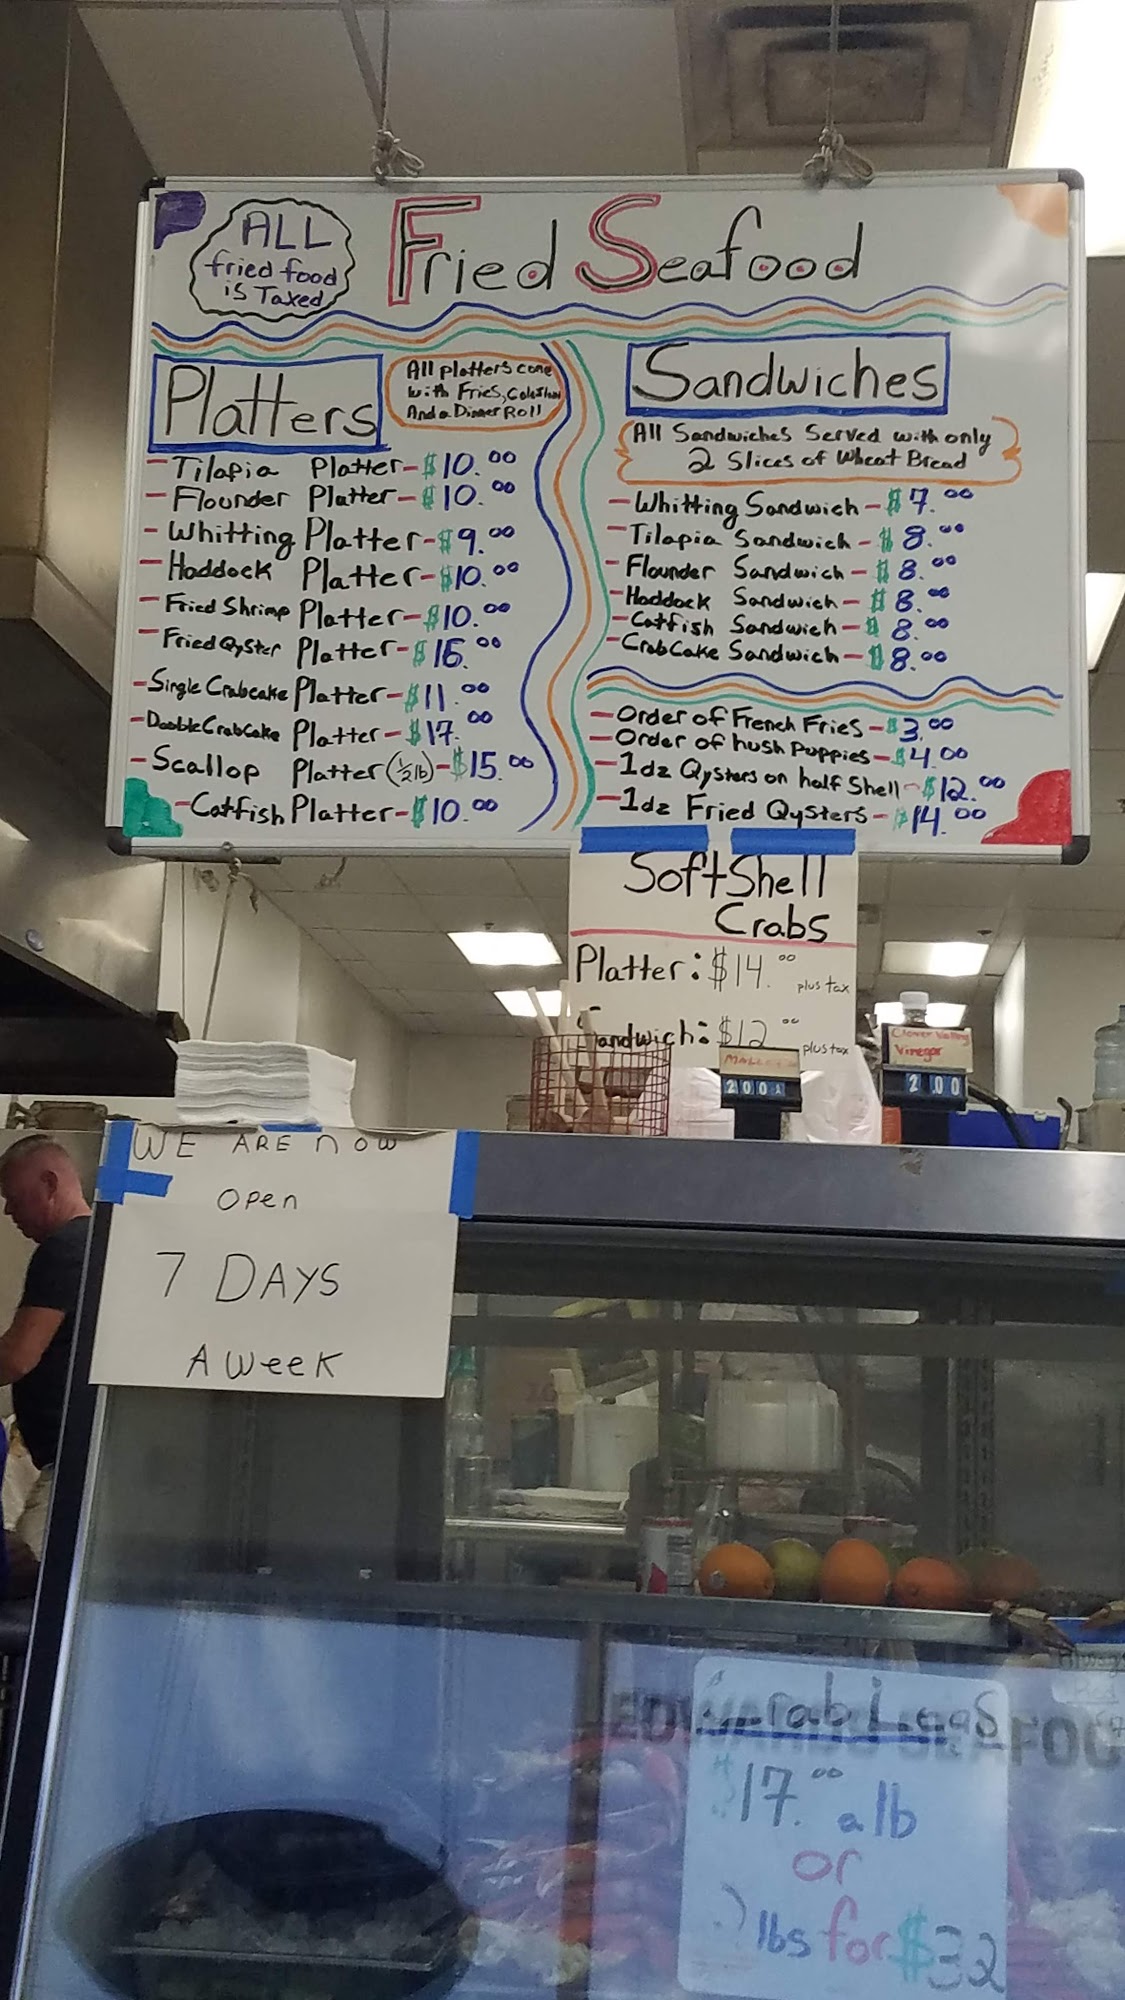 ALL
fried food
is Taxed
Fried Seafood
Platters
All platters come
with Fries, Coleslaw
And a Dinner Roll
-Tilapia Platter-$10.00
-Flounder Platter-$10.00
-Whitting Platter-$9.00
-Haddock Platter-$10.00
-Fried Shrimp Platter-$10.00
-Fried Qyster Platter-$15.00
-Single Crabcake Platter-$11.00
-Double CrabCake Platter-$17.00
-Scallop Platter (1/2 lb)-$15.00
-Catfish Platter-$10.00
Sandwiches
All Sandwiches Served with only
2 Slices of Wheat Bread
-Whitting Sandwich-$7.00
-Tilapia Sandwich-$8.00
-Flounder Sandwich-$8.00
-Haddock Sandwich-$8.00
-Catfish Sandwich-$8.00
-CrabCake Sandwich-$8.00
-Order of French Fries-$3.00
-Order of hush puppies-$4.00
-1dz Qysters on half Shell-$12.00
-1dz Fried Qysters-$14.00
SoftShell
Crabs
Platter: $14.00 plus tax
Sandwich: $12.00 plus tax
Vinegar
2.00
WE ARE NOW
Open
7 DAYS
A Week
Crab Legs
$17.00 a lb
or
lbs for $32